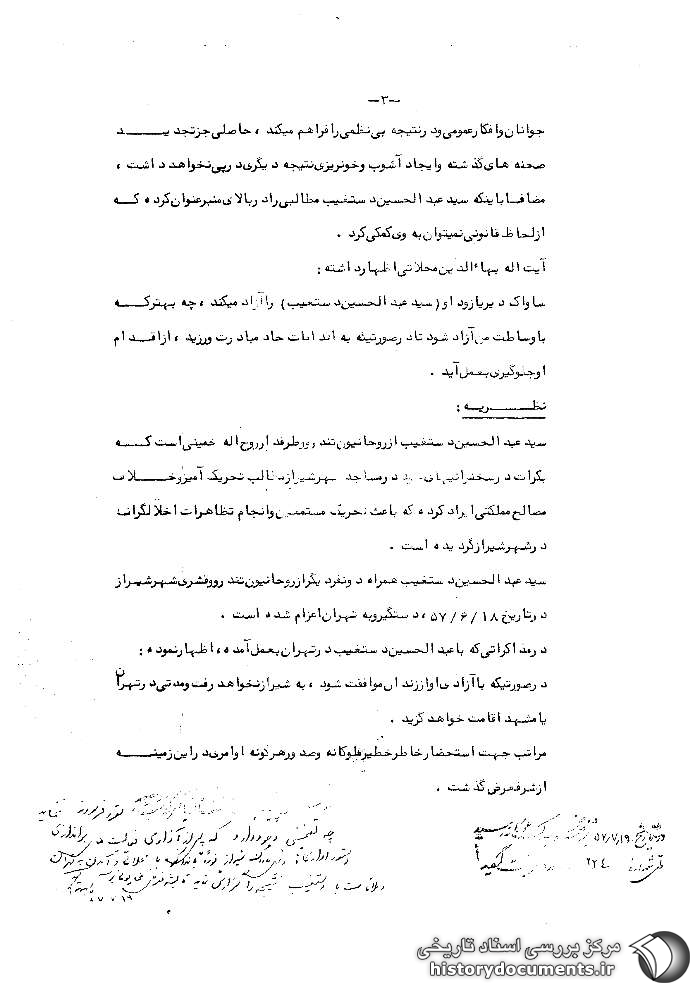 -۳-
جوانان وافکارعمومی ود رنتیجه بی نظمی را فراهم میکند ، حاصلی جز تجد یـــــــد
صحنه های گذ شته وایجاد آشوب وخونریزی نتیجه د یگری د رپی نخواهد د اشت ،
مضافا باینکه سید عبد الحسین د ستغیب مطالبی راد ربالای منبرعنوان کرد ه کــــه
ازلحاظ قانونی نمیتوان به وی کمکی کرد .
آیت اله بهاءالد ین محلاتی اظهارد اشته :
ساواک د یریازود او ( سید عبد الحسین د ستغیب ) را آزاد میکند ، چه بهترکــــه
باوساطت من آزاد شود تاد رصورتیکه به اقد امات حاد مباد رت ورزید ، ازاقــد ام
اوجلوگیری بعمل آید .
نظـــــــریـــه :
سید عبد الحسین د ستغیب ازروحانیون تند رووطرفد ارروح اله خمینی است کــــه
بکرات د رسخنرانیهای خود د رمساجد شهرشیرازمطالب تحریک آمیزوخـــلاف
مصالح مملکتی ایراد کرد ه که باعث تحریک مستمعین وانجام تظاهرات اخلالگرانه
د رشهرشیرازگرد ید ه است .
سید عبد الحسین د ستغیب همراه د ونفرد یگرازروحانیون تند رووقشری شهرشیراز
د رتاریخ ۵۷/۶/۱۸ ، د ستگیروبه تهران اعزام شد ه است .
د رمذ اکراتی که باعبد الحسین د ستغیب د رتهران بعمل آمد ه ، اظهارنمود ه :
د رصورتیکه با آزاد ی اواززند ان موافقت شود ، به شیرازنخواهد رفت ومدتی د رتهران
یا مشهد اقامت خواهد گزید .
مراتب جهت استحضارخاطرخطیرملوکانه وصد ورهرگونه اوامری د راین زمینــــه
ازشرفعرض گذ شت .
چه تضمینی وجود دارد که پس از آزادی فعالیت های براندازی
۵۷/۷/۱۹
مرکز بررسی اسناد تاریخی
historydocuments.ir